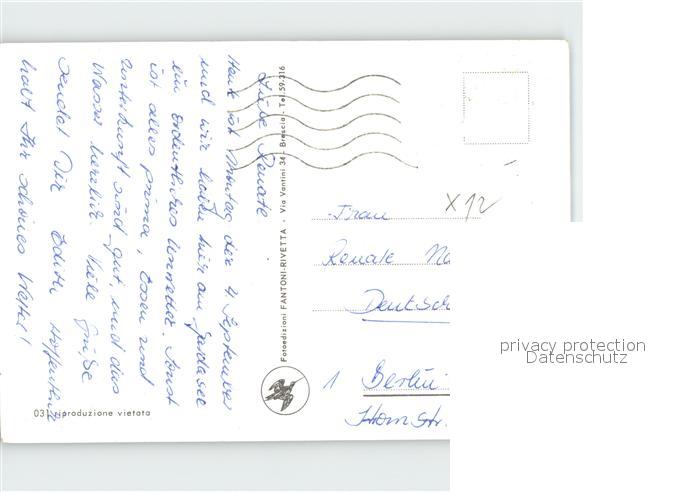 Liebe Renate
Heute ist Montag der 4. September
und wir haben hier am Gardasee
ein ordentliches Unwetter. Sonst
ist alles prima, Essen und
Unterkunft sind gut, und das
Wasser herrlich. Viele Grüße
sendet Dir Edith Hoffentlich
habt Ihr schönes Wetter!
Fotoedizioni FANTONI-RIVETTA - Via Vantini 34 - Brescia - Tel. 59.316
X12
Frau
Renate
Deutsch
1 Berlin
Hornstr.
031 riproduzione vietata
privacy protection
Datenschutz